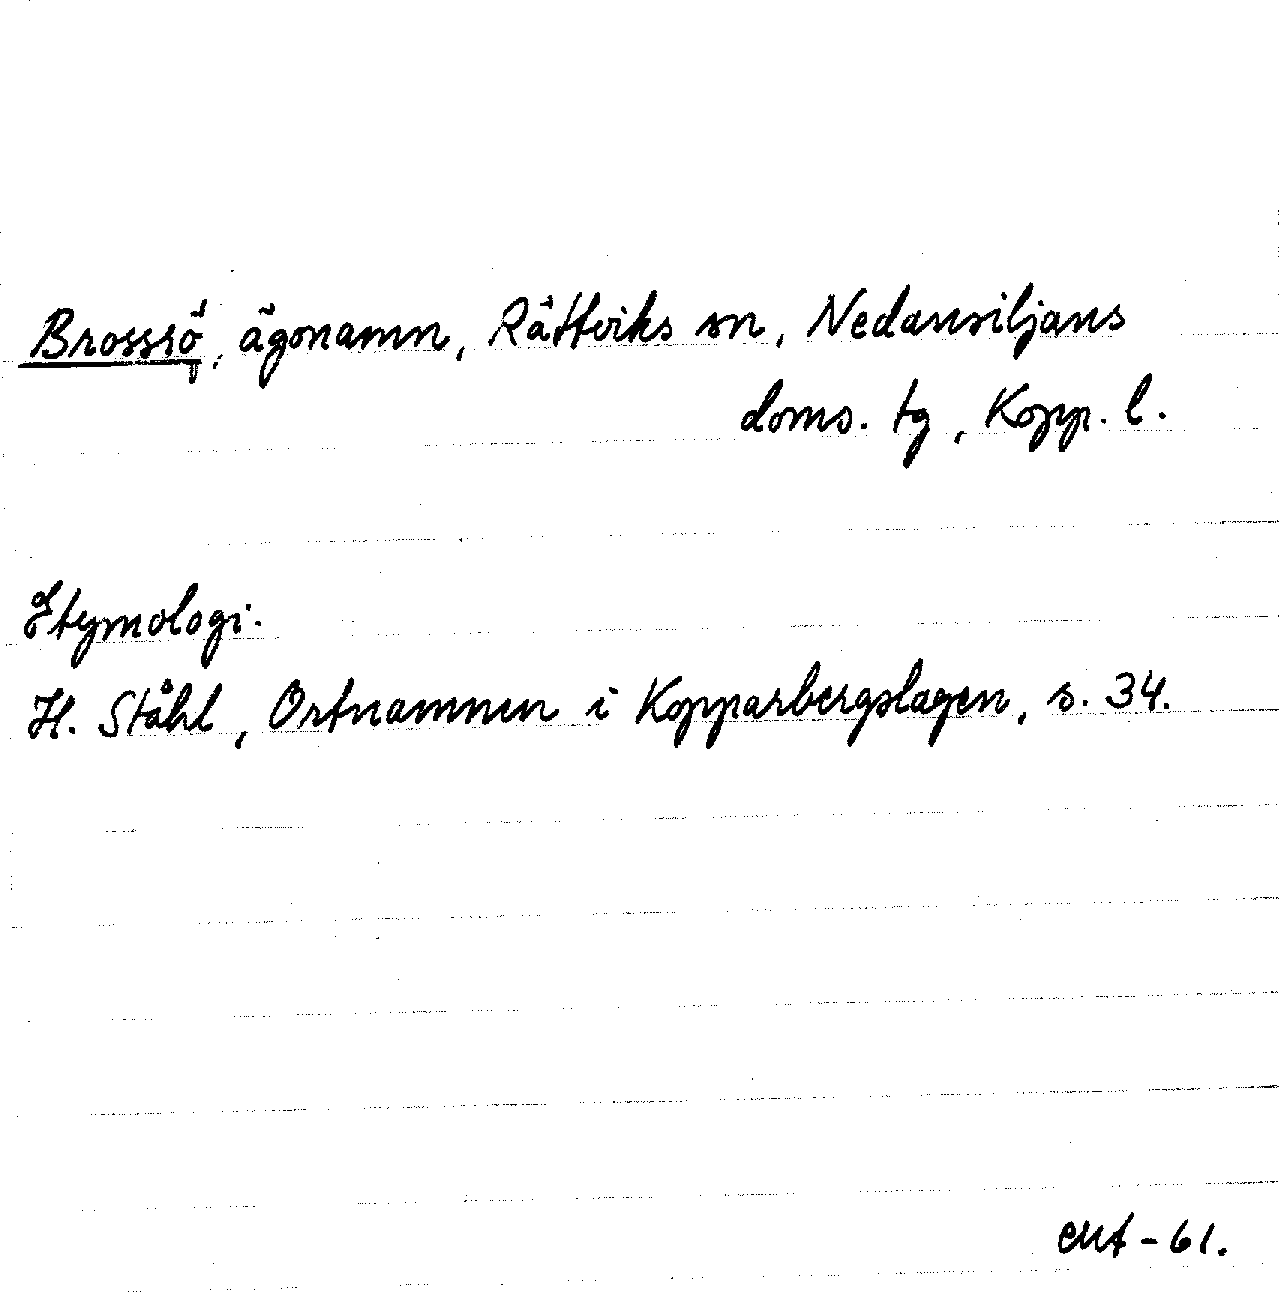 Brosssö, ägonamn, Rättviks sn, Nedansiljans
doms. tg, Kopp. l.
Etymologi.
H. Ståhl, Ortnamnen i Kopparbergslagen, s. 34.
-61.